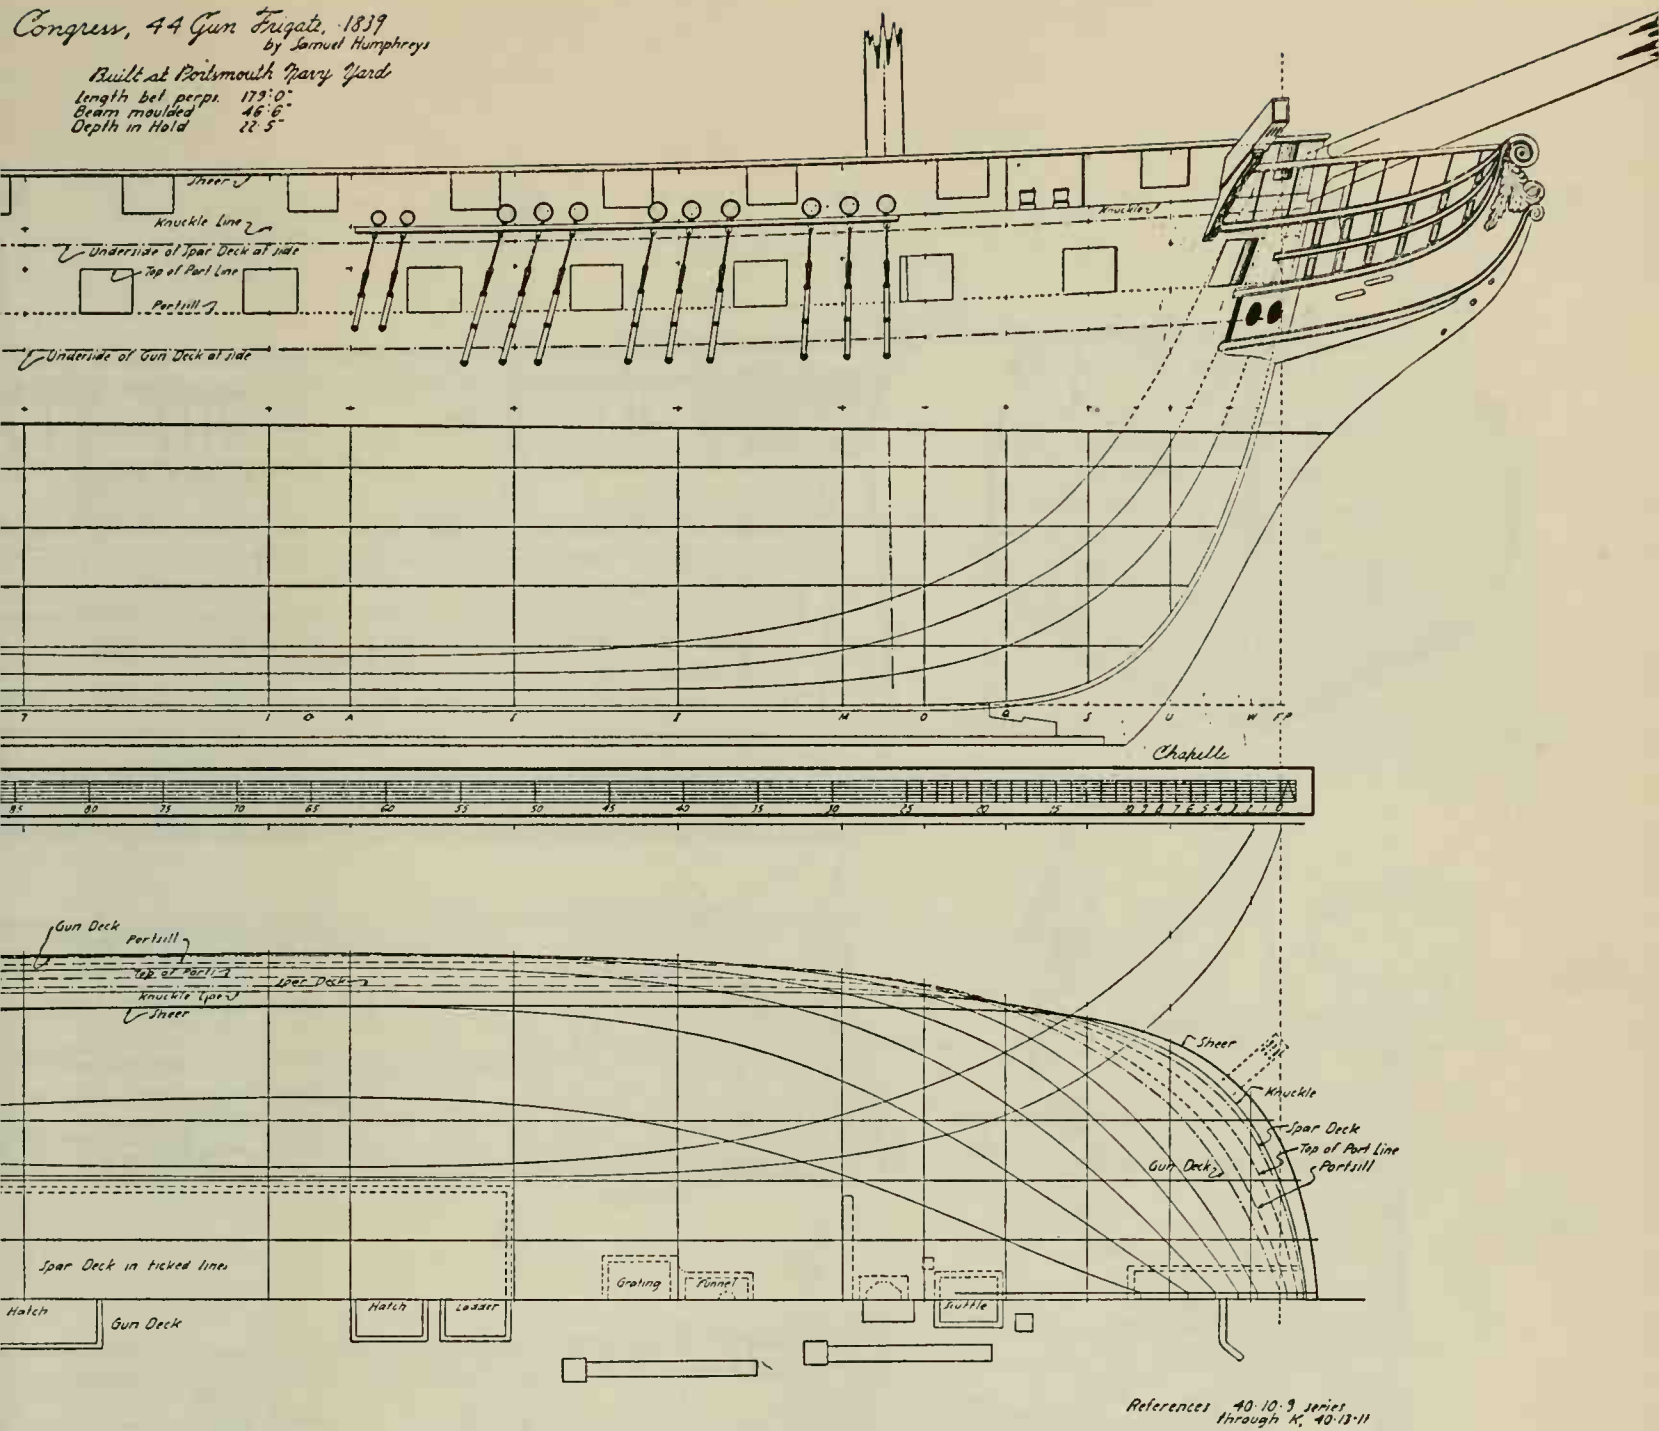 Congress, 44 Gun Frigate, 1839
by Samuel Humphreys
Built at Portsmouth Navy Yard
Length bet perps. 179'-0"
Beam moulded 46'-6"
Depth in Hold 22'-5"
Sheer
Knuckle Line
Knuckle
Underside of Spar Deck at side
Top of Port Line
Portsill
Underside of Gun Deck at side
7 1 O A M O Q S U W F.P.
Chapelle
85 80 75 70 65 60 55 50 45 40 35 30 25 20 15 10 9 8 7 6 5 4 3 2 1 0
Gun Deck
Portsill
Top of Ports
Spar Deck
Knuckle Line
Sheer
Sheer
Knuckle
Spar Deck
Top of Port Line
Portsill
Gun Deck
Spar Deck in ticked lines
Grating
Funnel
Hatch
Gun Deck
Hatch
Ladder
Scuttle
References 40-10-9 series
through K, 40-13-11